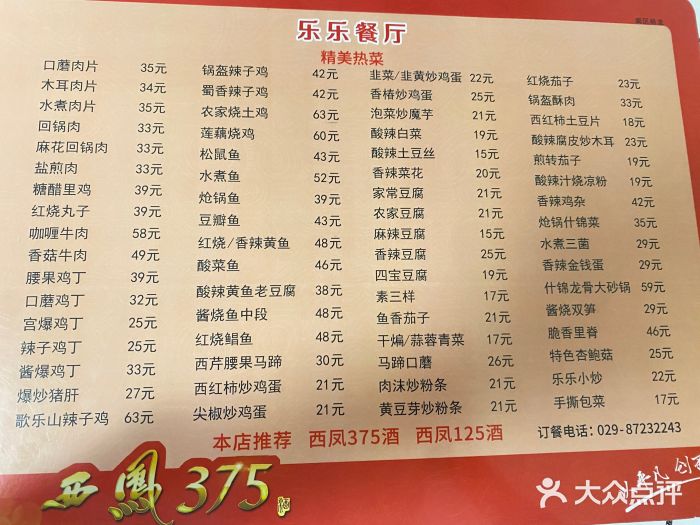 乐乐餐厅
精美热菜
口蘑肉片 35元
木耳肉片 34元
水煮肉片 35元
回锅肉 33元
麻花回锅肉 33元
盐煎肉 33元
糖醋里鸡 39元
红烧丸子 39元
咖喱牛肉 58元
香菇牛肉 49元
腰果鸡丁 39元
口蘑鸡丁 32元
宫爆鸡丁 25元
辣子鸡丁 25元
酱爆鸡丁 33元
爆炒猪肝 27元
歌乐山辣子鸡 63元
锅盔辣子鸡 42元
蜀香辣子鸡 42元
农家烧土鸡 63元
莲藕烧鸡 60元
松鼠鱼 43元
水煮鱼 52元
炝锅鱼 43元
豆瓣鱼 43元
红烧/香辣黄鱼 48元
酸菜鱼 46元
酸辣黄鱼老豆腐 38元
酱烧鱼中段 48元
红烧鲳鱼 48元
西芹腰果马蹄 30元
西红柿炒鸡蛋 21元
尖椒炒鸡蛋 21元
韭菜/韭黄炒鸡蛋 22元
香椿炒鸡蛋 25元
泡菜炒魔芋 21元
酸辣白菜 19元
酸辣土豆丝 15元
香辣菜花 20元
家常豆腐 21元
农家豆腐 21元
麻辣豆腐 15元
香辣豆腐 25元
四宝豆腐 19元
素三样 17元
鱼香茄子 21元
干煸/蒜蓉青菜 17元
马蹄口蘑 26元
肉沫炒粉条 21元
黄豆芽炒粉条 21元
红烧茄子 23元
锅盔酥肉 33元
西红柿土豆片 18元
酸辣腐皮炒木耳 23元
煎转茄子 19元
酸辣汁烧凉粉 19元
香辣鸡杂 42元
炝锅什锦菜 35元
水煮三菌 29元
香辣金钱蛋 29元
什锦龙骨大砂锅 59元
酱烧双笋 29元
脆香里脊 46元
特色杏鲍菇 25元
乐乐小炒 22元
手撕包菜 17元
本店推荐 西凤375酒 西凤125酒
订餐电话：029-87232243
西鳳375
大众点评